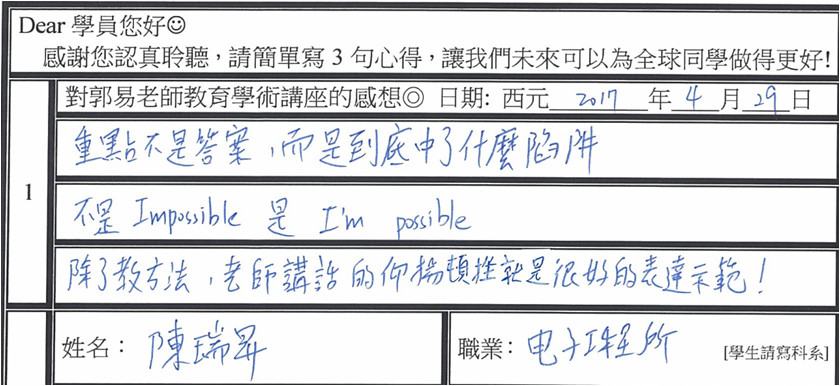 Dear 學員您好☺
感謝您認真聆聽，請簡單寫 3 句心得，讓我們未來可以為全球同學做得更好!
1
對郭易老師教育學術講座的感想◎ 日期: 西元 2017 年 4 月 29 日
重點不是答案，而是到底中了什麼陷阱
不是 Impossible 是 I'm possible
除了教方法，老師講話的仰揚頓挫就是很好的表達示範！
姓名： 陳瑞昇
職業： 电子工程所 [學生請寫科系]